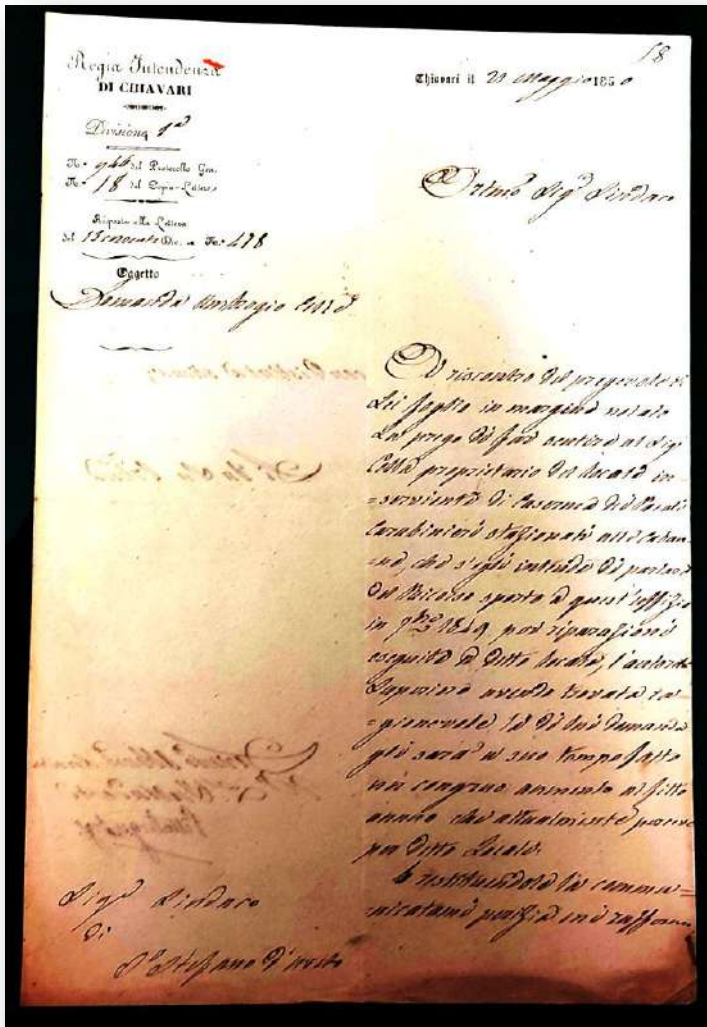 18
Regia Intendenza
DI CHIAVARI
Divisione 1ª
N.° 946 del Protocollo Gen.
N.° 18 del Copia-Lettere
Risposta alla Lettera
del 15 corrente Div. a N.° 478
Oggetto
Domanda Ambrogio Cella
Chiavari il 20 Maggio 1850
Sig.r Sindaco
A riscontro del pregevole di
Lei foglio in margine notato
La prego di far sentire al Sig.
Cella proprietario del locale in-
=serviente di Caserma dei Reali
Carabinieri stazionati alle Caban-
=ne, che s'egli intende di parlare
del Ricorso sporto a quest'Uffizio
in 1849 per riparazioni
eseguite a detto locale, l'autorità
Superiore avendo trovata ra-
=gionevole la di lui domanda
gli sarà a suo tempo fatto
un congruo aumento al fitto
annuo che attualmente
per detto Locale.
E restituendole la commu=
=nicatami perizia mi
Sig.r Sindaco
di
S.to Stefano d'Aveto